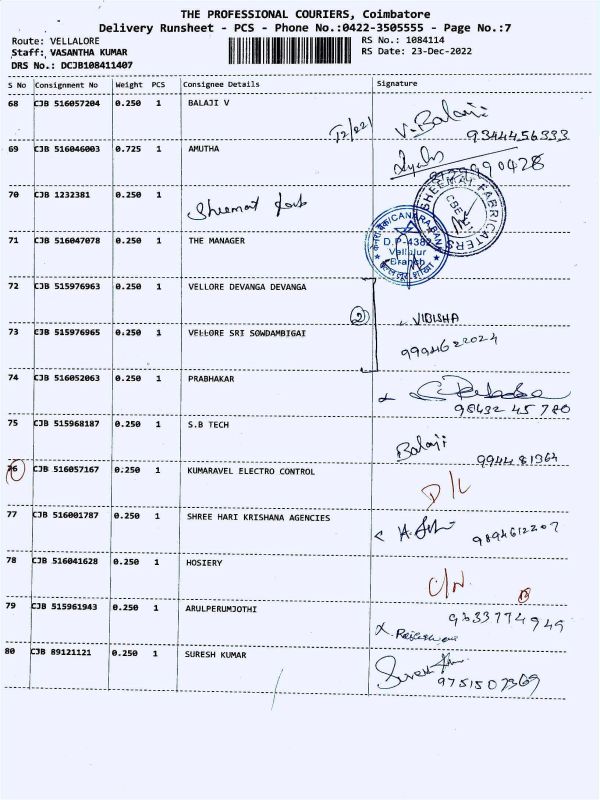 THE PROFESSIONAL COURIERS, Coimbatore
Delivery Runsheet - PCS - Phone No.:0422-3505555 - Page No.:7
Route: VELLALORE RS No.: 1084114
Staff: VASANTHA KUMAR RS Date: 23-Dec-2022
DRS No.: DCJB108411407
S No Consignment No Weight PCS Consignee Details Signature
68 CJB 516057204 0.250 1 BALAJI V V.Balaji
9344456333
69 CJB 516046003 0.725 1 AMUTHA
8129990428
70 CJB 1232381 0.250 1 SHEEMAT FABRICATERS
71 CJB 516047078 0.250 1 THE MANAGER CANARA BANK
D.P-4382
Vellalur
Branch
72 CJB 515976963 0.250 1 VELLORE DEVANGA DEVANGA
2 VIDISHA
73 CJB 515976965 0.250 1 VELLORE SRI SOWDAMBIGAI 9994622024
74 CJB 516052063 0.250 1 PRABHAKAR
98432 45780
75 CJB 515968187 0.250 1 S.B TECH
Balaji 9944481364
76 CJB 516057167 0.250 1 KUMARAVEL ELECTRO CONTROL
D/L
77 CJB 516001787 0.250 1 SHREE HARI KRISHANA AGENCIES
9894612207
78 CJB 516041628 0.250 1 HOSIERY
C/N.
79 CJB 515961943 0.250 1 ARULPERUMJOTHI 9833774949
80 CJB 89121121 0.250 1 SURESH KUMAR
9751507369